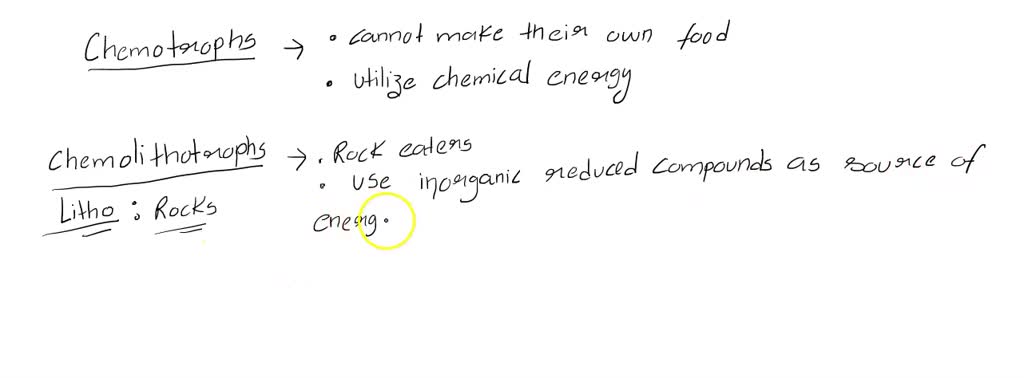 Chemotrophs → • cannot make their own food
• utilize chemical energy
Chemolithotrophs → • Rock eaters
• use inorganic reduced compounds as source of
Litho : Rocks
energ